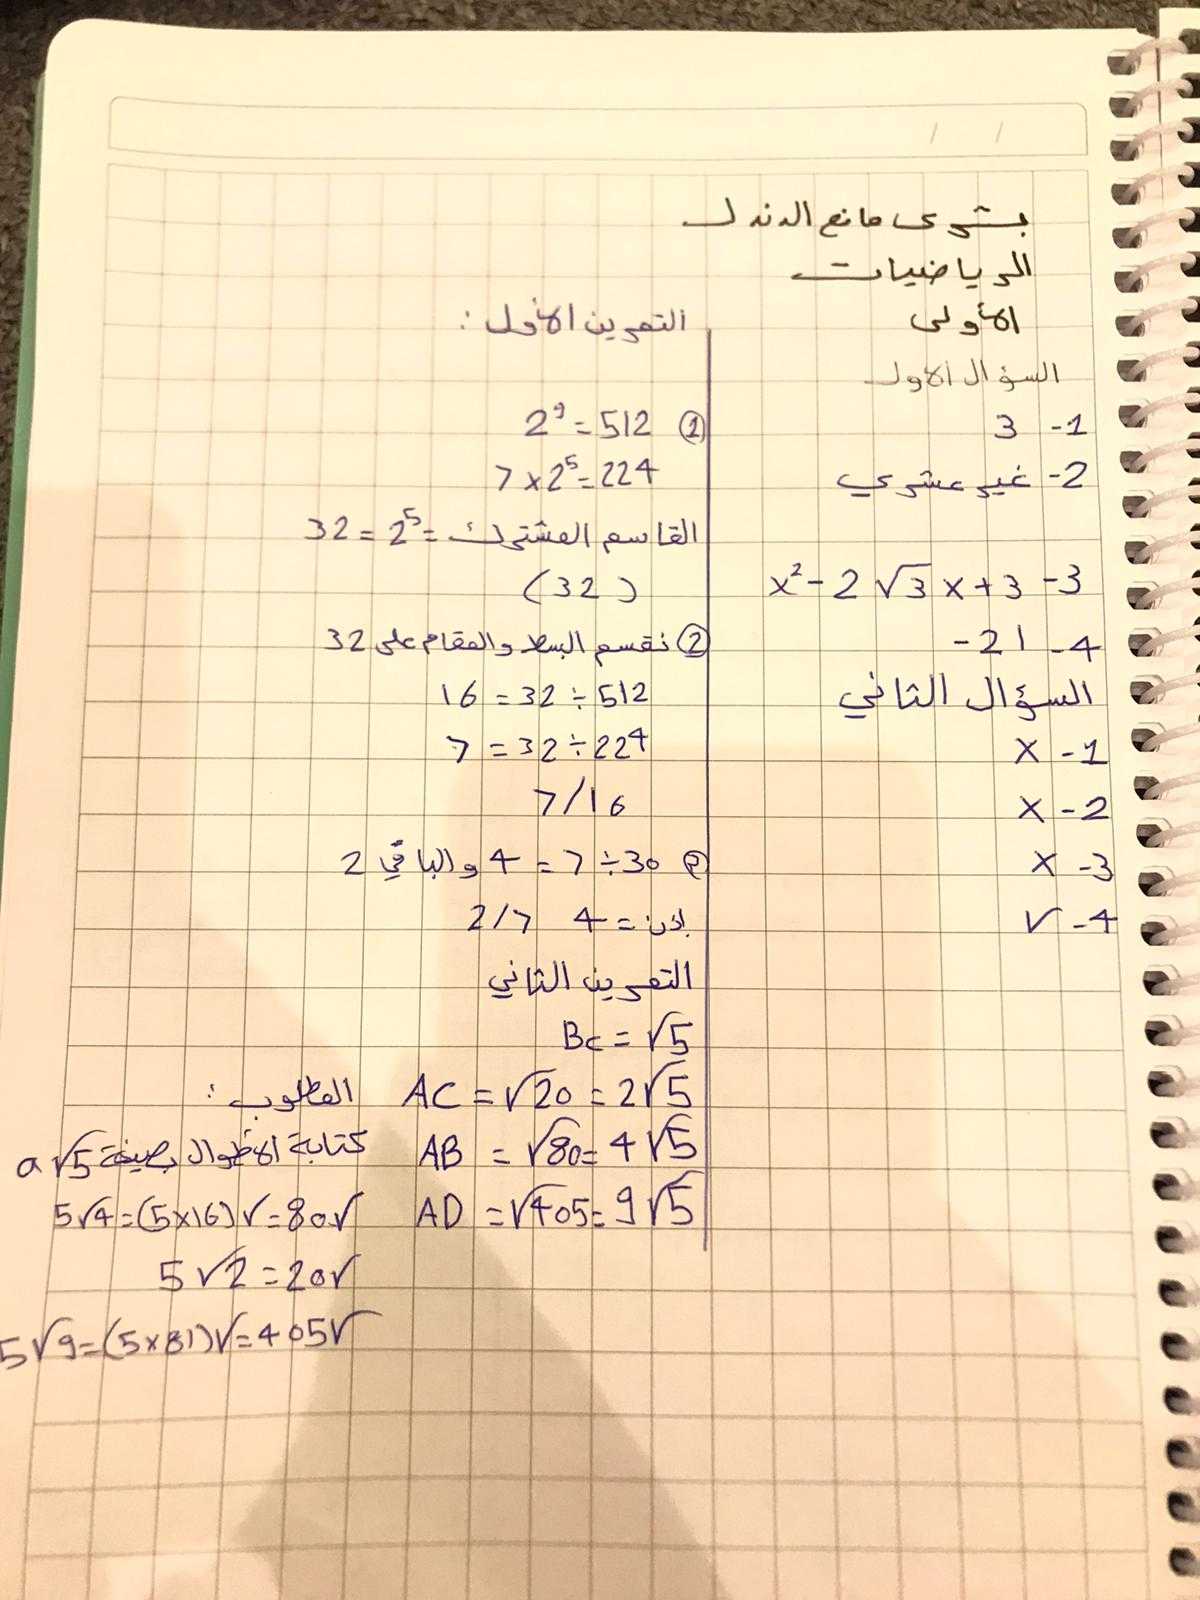 بشرى مانع الدندل
الرياضيات
الأولى
السؤال الأول
1- 3
2- غير عشري
3- x² - 2√3 x + 3
4- -21
السؤال الثاني
1- X
2- X
3- X
4- √
التمرين الأول :
① 2⁹ = 512
7 × 2⁵ = 224
القاسم المشترك = 2⁵ = 32
(32)
② نقسم البسط والمقام على 32
512 ÷ 32 = 16
224 ÷ 32 = 7
7/16
30 ÷ 7 = 4 والباقي 2
إذن = 4 2/7
التمرين الثاني
Bc = √5
AC = √20 = 2√5
AB = √80 = 4√5
AD = √405 = 9√5
المطلوب :
كتابة الأطوال بصيغة a√5
5√4 = (5×16)√ = 80√
5√2 = 20√
5√9 = (5×81)√ = 405√